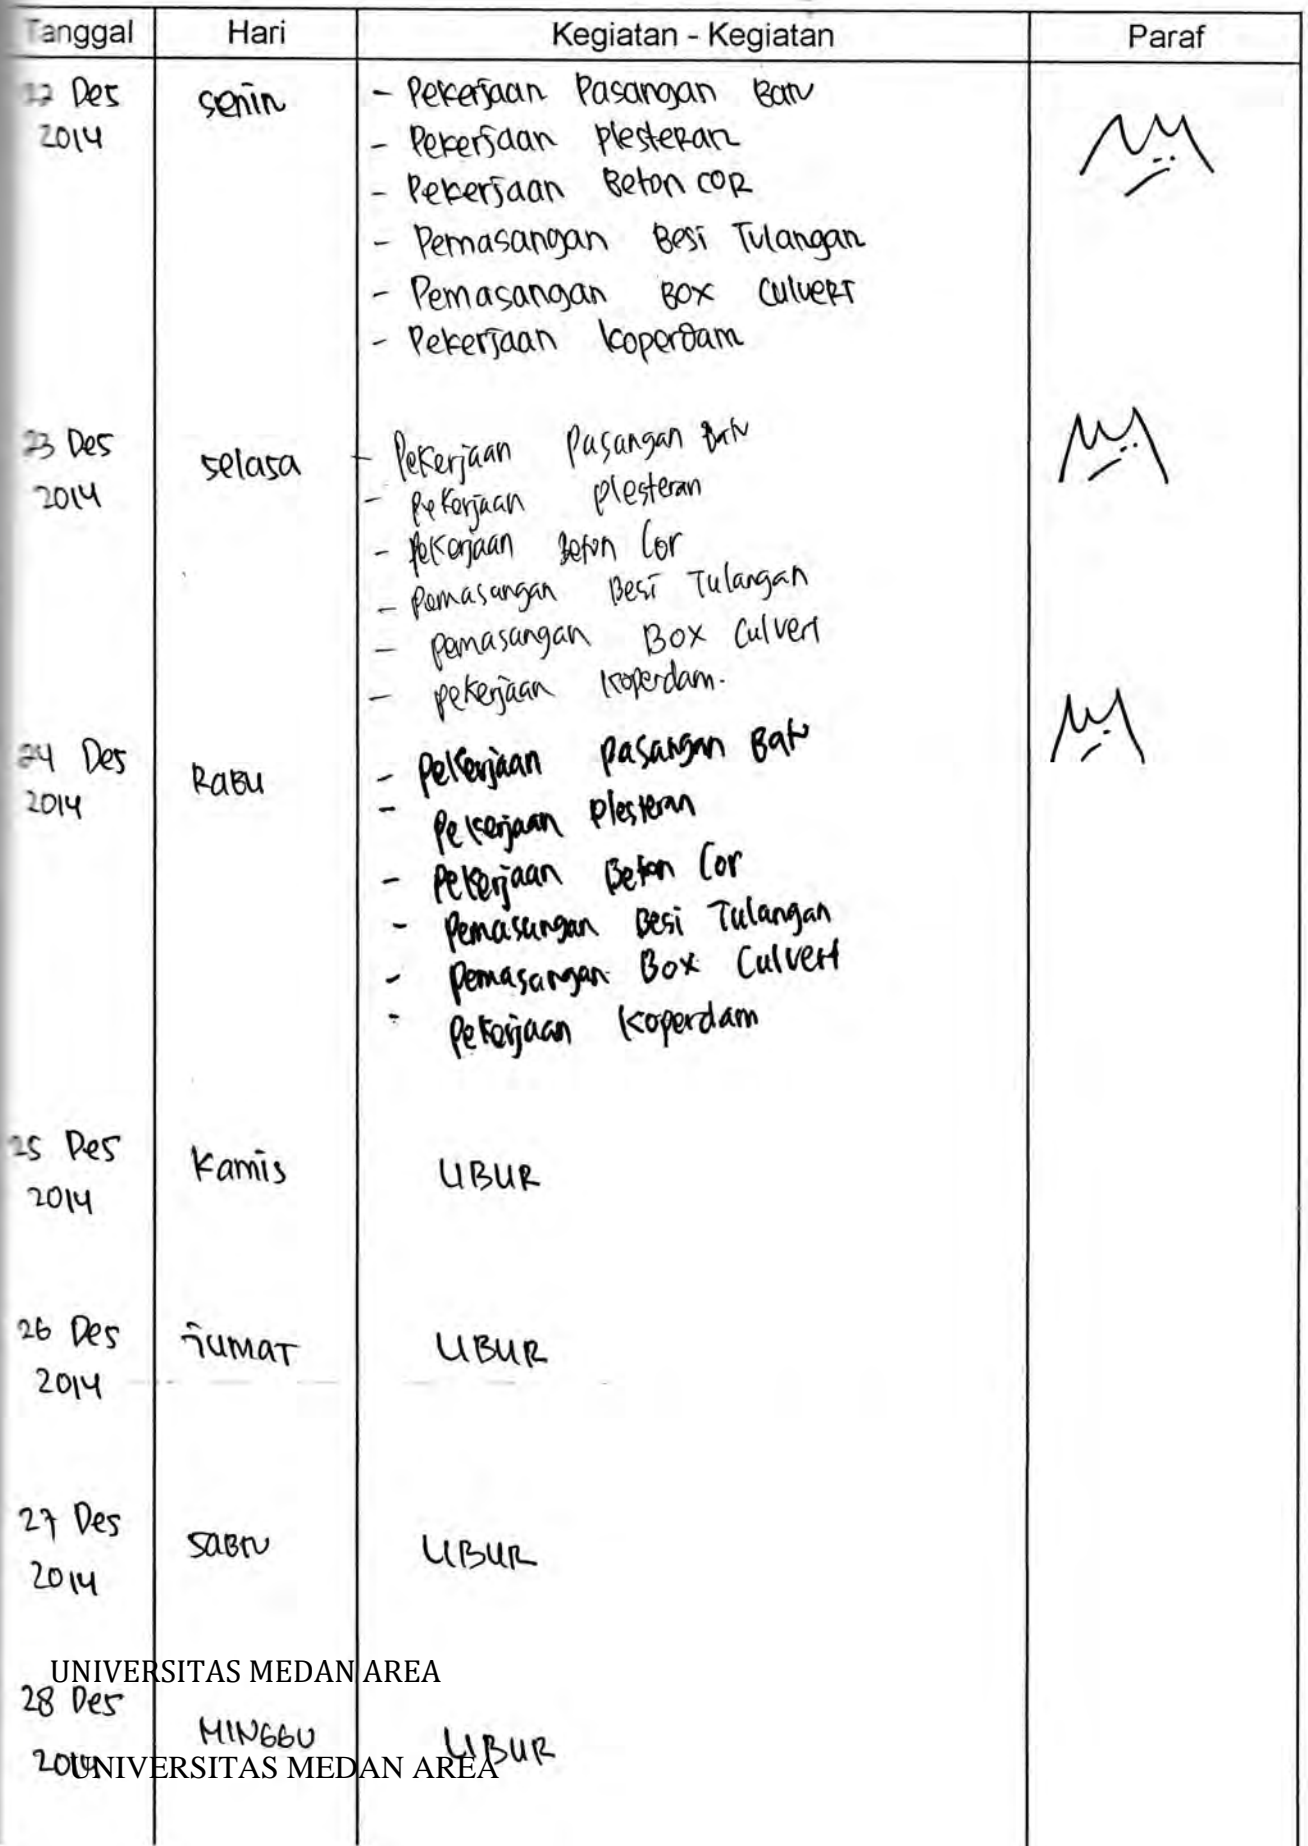 Tanggal Hari Kegiatan - Kegiatan Paraf
22 Des senin - Pekerjaan Pasangan Batu
2014 - Pekerjaan Plesteran
- Pekerjaan Beton cor
- Pemasangan Besi Tulangan
- Pemasangan Box Culvert
- Pekerjaan koperdam
23 Des selasa - Pekerjaan Pasangan Batu
2014 - Pekerjaan plesteran
- Pekerjaan Beton Cor
- Pemasangan Besi Tulangan
- pemasangan Box Culvert
- pekerjaan koperdam.
24 Des RABU - Pekerjaan Pasangan Batu
2014 - Pekerjaan Plesteran
- Pekerjaan Beton Cor
- Pemasangan Besi Tulangan
- Pemasangan Box Culvert
- Pekerjaan Koperdam
25 Des Kamis LIBUR
2014
26 Des JUMAT LIBUR
2014
27 Des SABTU LIBUR
2014
UNIVERSITAS MEDAN AREA
28 Des MINGGU LIBUR
2014
UNIVERSITAS MEDAN AREA